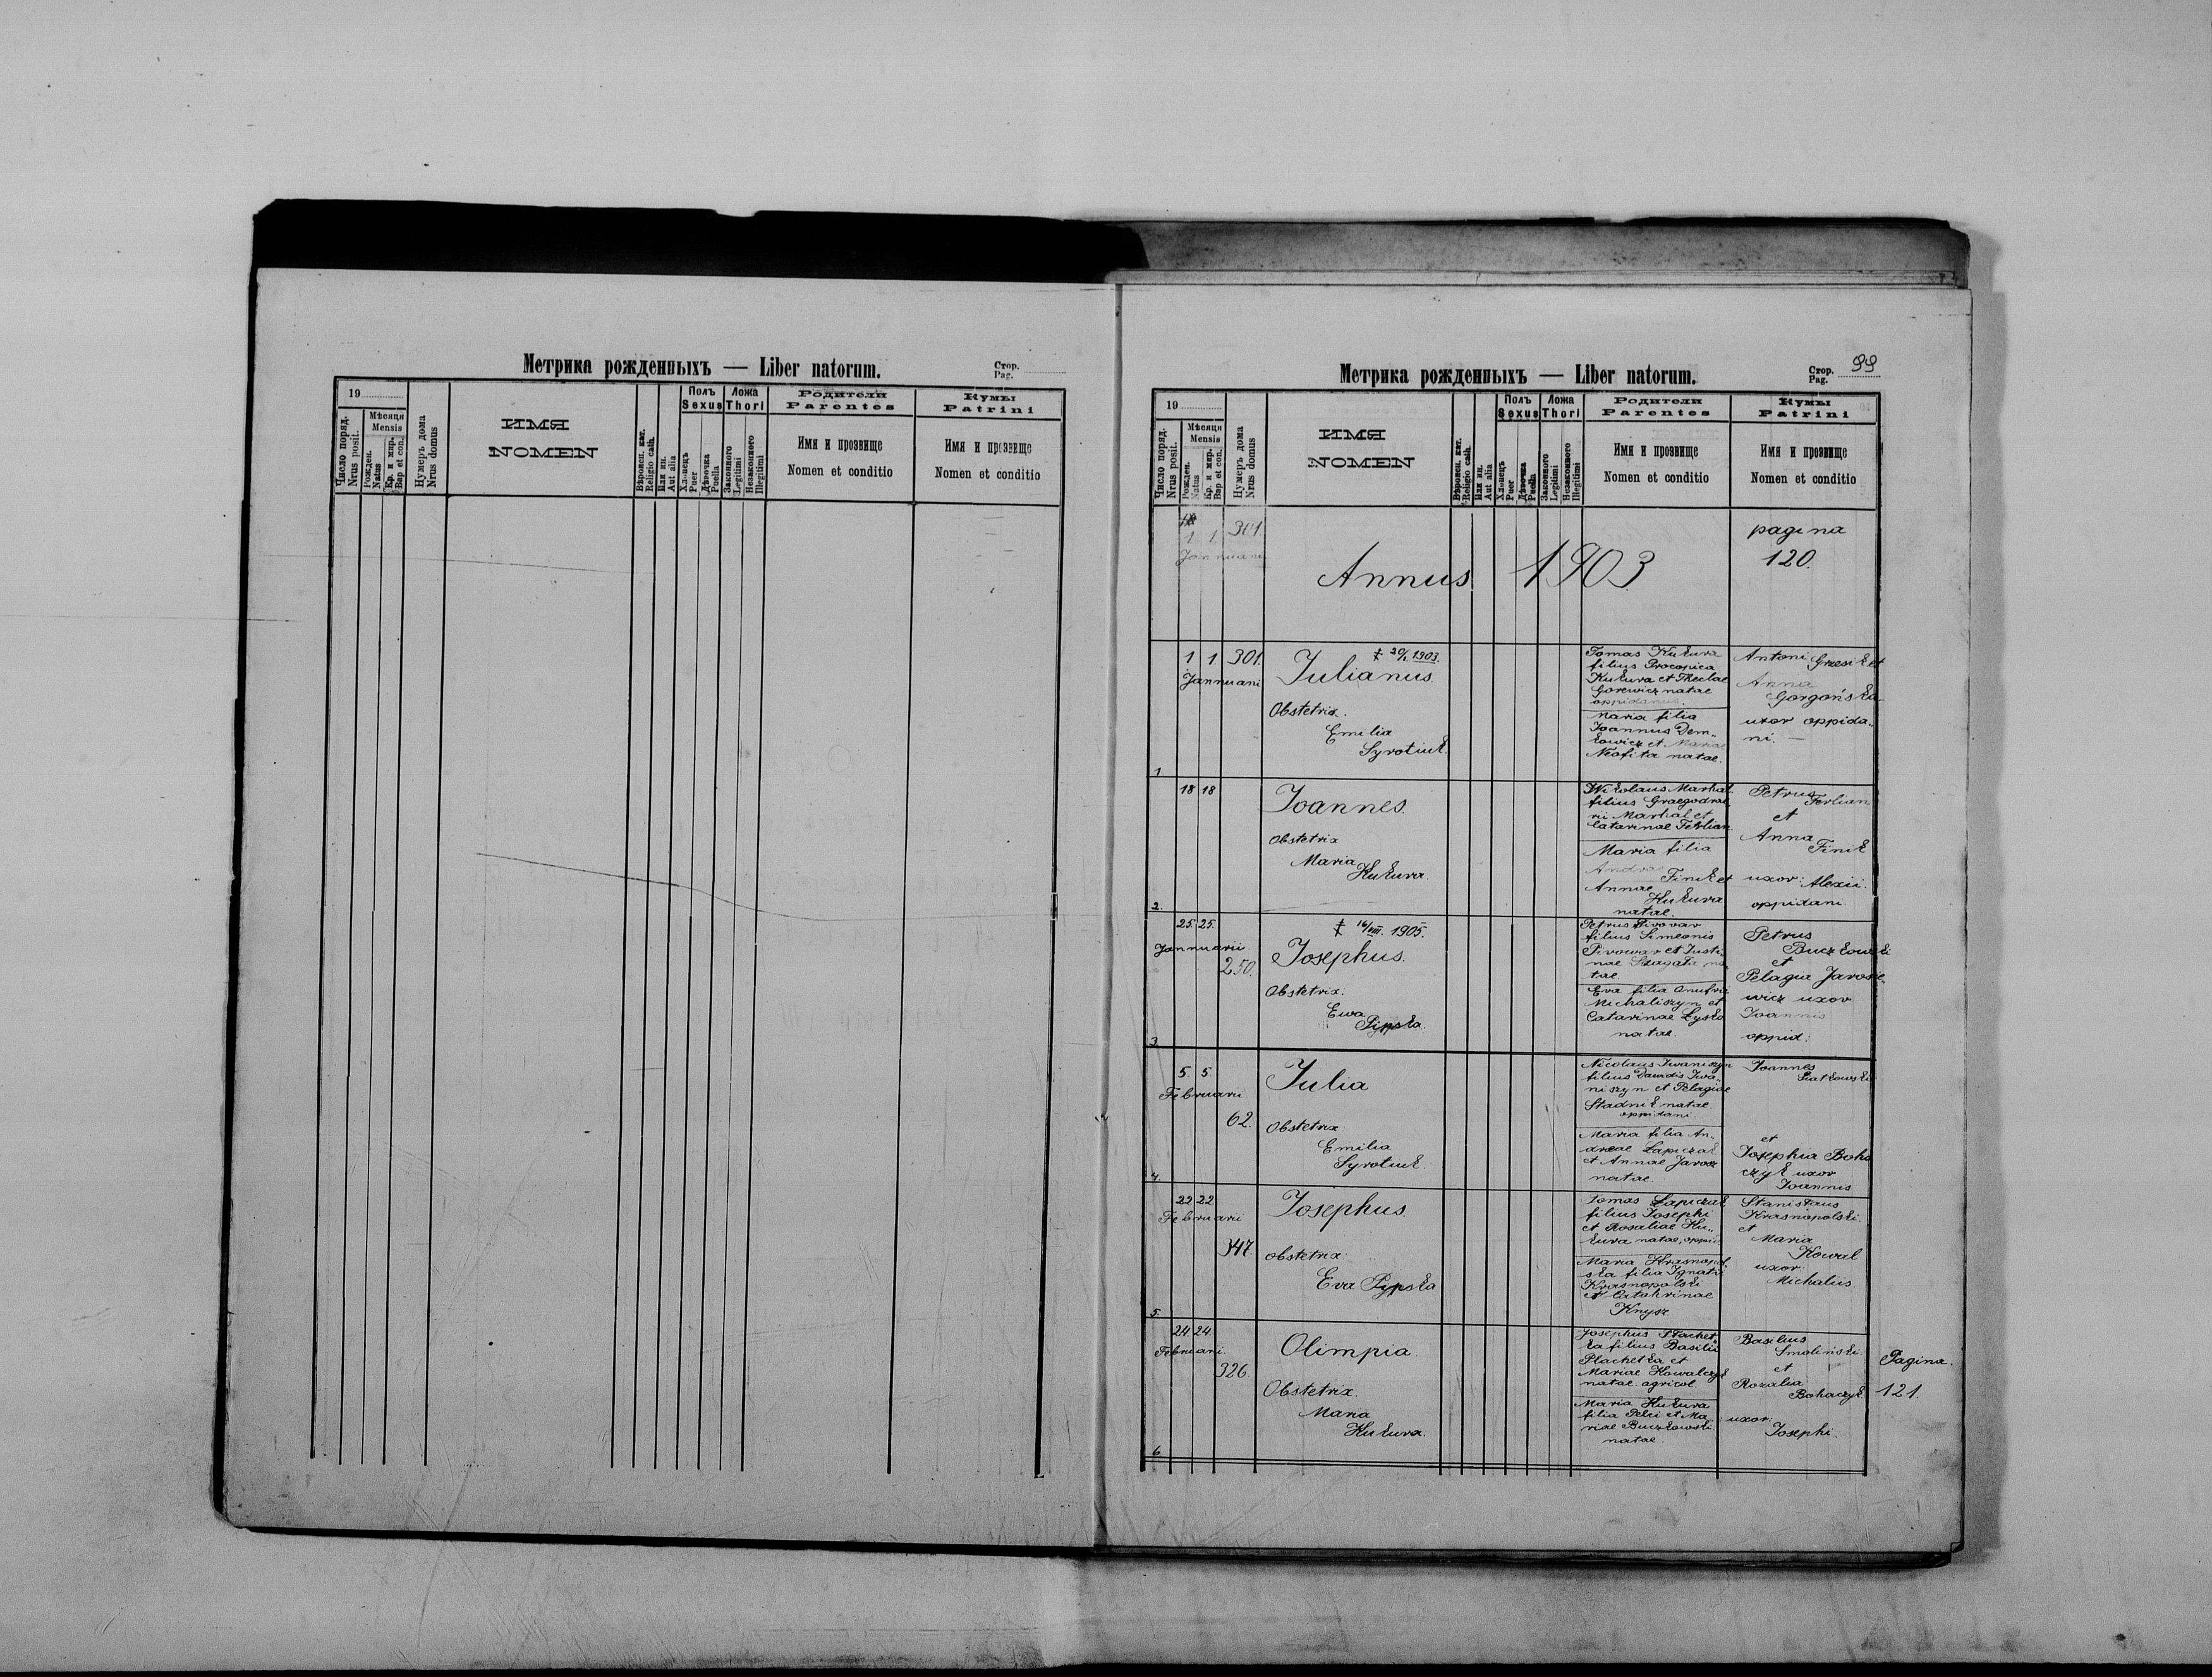 Метрика рожденныхъ — Liber natorum.
Стор.
Pag.
19
Число поряд.
Nrus posit.
Мѣсяця
Mensis
Рожден.
Natus
Кр. и мир.
Bap et con.
Нумеръ дома
Nrus domus
ИМЯ
NOMEN
Вѣроисп. кат.
Religio cath.
Или ин.
Aut alia
Полъ
Sexus
Хлопецъ
Puer
Дѣвочка
Puella
Ложа
Thori
Законного
Legitimi
Незаконного
Illegitimi
Родители
Parentes
Имя и прозвище
Nomen et conditio
Кумы
Patrini
Имя и прозвище
Nomen et conditio
Метрика рожденныхъ — Liber natorum.
Стор.
Pag.
99
19
Число поряд.
Nrus posit.
Мѣсяця
Mensis
Рожден.
Natus
Кр. и мир.
Bap et con.
Нумеръ дома
Nrus domus
ИМЯ
NOMEN
Вѣроисп. кат.
Religio cath.
Или ин.
Aut alia
Полъ
Sexus
Хлопецъ
Puer
Дѣвочка
Puella
Ложа
Thori
Законного
Legitimi
Незаконного
Illegitimi
Родители
Parentes
Имя и прозвище
Nomen et conditio
Кумы
Patrini
Имя и прозвище
Nomen et conditio
1 1 301.
Jannuarii
Annus 1903
pagina
120.
1 1. 301.
Jannuarii
Julianus.
1903.
Obstetrix.
Emilia
Syrotiuk.
Tomas Kukura
filius Procopica
Kukura et Theclae
Gorewicz natae
oppidanus.
Maria filia
Joannus Dem„
kowicz et Mariae
Neofita natae.
Antoni Grzesik et
Anna
Gorgońska
uxor oppida„
ni. —
1
18 18
Joannes.
Obstetrix
Maria
Kukura.
filius
Marhal et
Catarinae Ferlian
Maria filia
Finik et
Annae
Kukura
natae.
Petrus
Ferlian
et
Anna
Finik
uxor: Alexii.
oppidani
2.
25. 25.
Jannuarii
250.
‡ 16/VIII. 1905.
Josephus.
Obstetrix:
Ewa
Pipska.
Petrus Pivovar
filius Simeonis
Pivowar et Justi„
nae
tae.
Eva filia Onufrii
Michaliszyn et
Catarinae Łysko
natae.
Petrus
Buczkowski
et
Pelagia Jarosie„
wicz uxor
Joannis
oppid:
3.
5. 5.
Februarii
62.
Julia
Obstetrix
Emilia
Syrotiuk.
Nicolaus Iwaniszyn
filius Davidis Iwa„
niszyn et Pelagiae
Stadnik natae
oppidani
Maria filia An„
dreae Łapiczak
et Annae Jarosz
natae.
Joannes
et
Josephia Boha
czyk uxor
Joannis
4.
22 22
Februarii
347.
Josephus
Obstetrix:
Eva Pypska
Tomas Łapiczak
filius Josephi
et Rosaliae Ku„
kura natae, oppid.
Maria Krasnopol„
ska filia Ignatii
Krasnopolski
et Catuhrinae
Knysz
Stanislaus
Krasnopolski.
et
Maria
Kowal
uxor:
Michaliis
5.
24. 24.
Februarii.
326.
Olimpia.
Obstetrix.
Maria
Kukura.
Josephus Płachet„
ka filius Basilii
Plachetka et
Mariae Kowalczyk
natae. agricol.
Maria Kukura
filia Petri et Ma„
riae Buczkowski
natae.
Basilius
Smoliński.
et
Rozalia
Bohaczyk
uxor:
Josephi.
Pagina.
121.
6